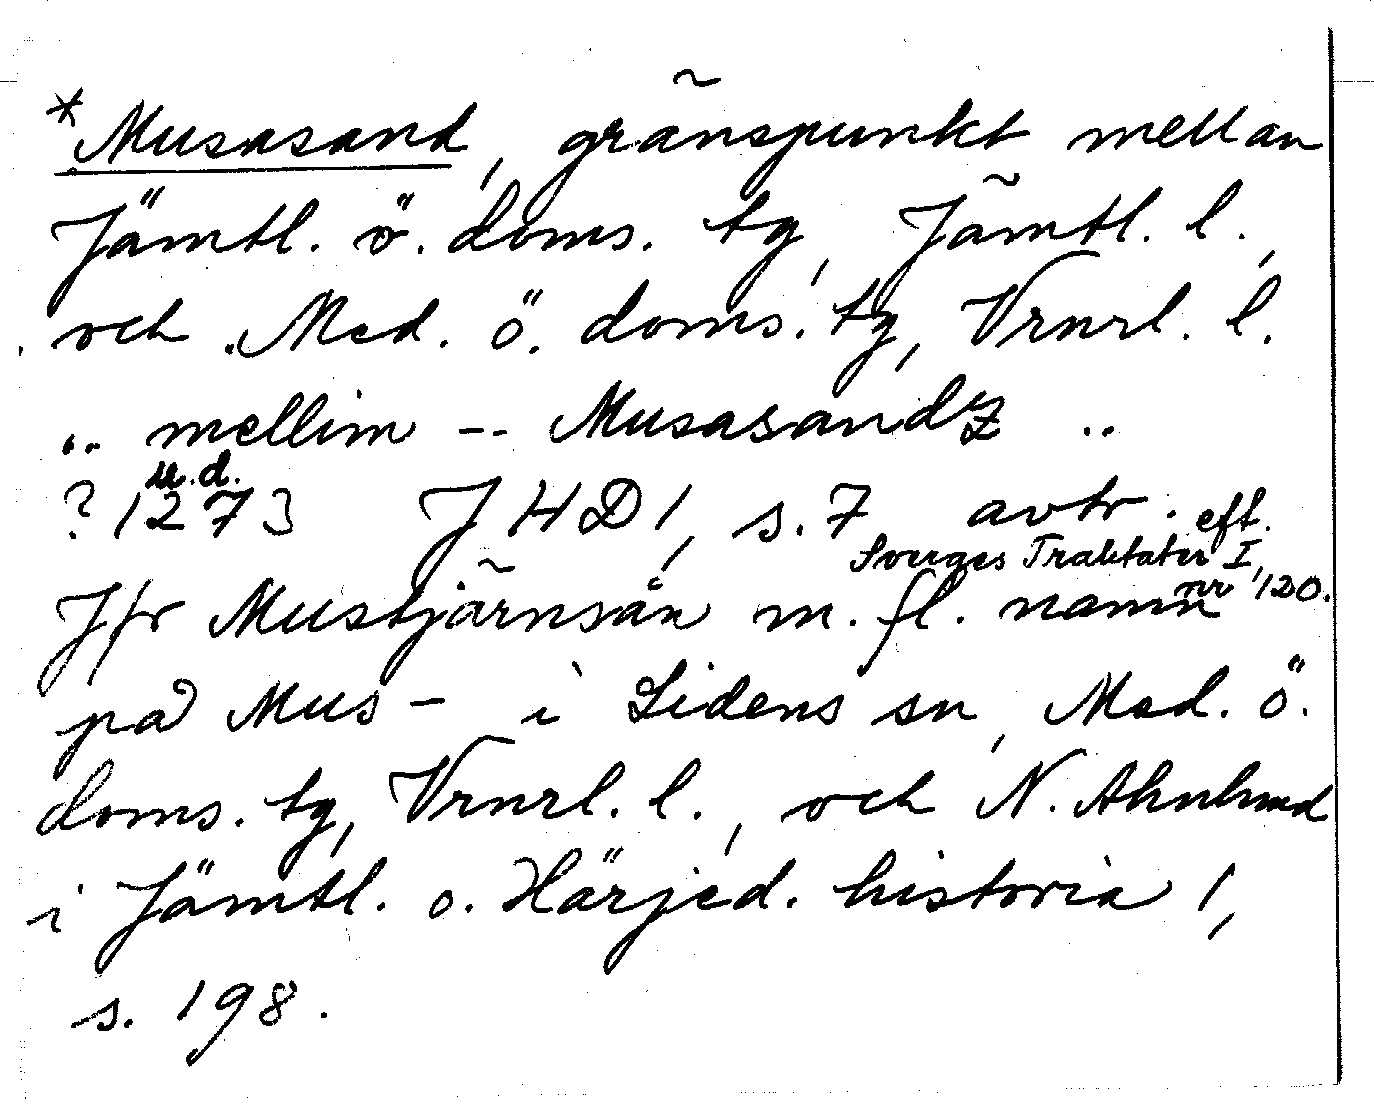 *Musasand, gränspunkt mellan
Jämtl. ö. doms. tg, Jämtl. l.,
och Med. ö. doms. tg, Vrnrl. l.
.. mellim -- Musasandz ..
u.d.
? 1273 JHD 1, s. 7 avtr. eft.
Sverges Traktater I,
nr 120.
Jfr Mustjärnsån m. fl. namn
på Mus- i Lidens sn, Med. ö.
doms. tg, Vrnrl. l., och N. Ahnlund
i Jämtl. o. Härjed. historia 1,
s. 198.